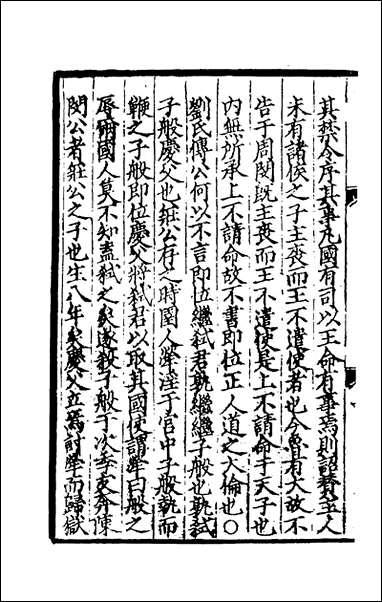 其禁令序其事凡國有司以王命有事焉則詔贊主人
未有諸侯之子主喪而王不遣使者也今魯有大故不
告于周閔既主喪而王不遣使是上不請命于天子也
内無所承上不請命故不書即位正人道之大倫也○
劉氏傳公何以不言即位繼弑君孰繼繼子般也孰弑
子般慶父也莊公存之時圉人犖淫于宮中子般執而
鞭之子般即位慶父將弑君以取其國使謂犖曰般之
辱爾國人莫不知盍弑之矣遂殺子般于次季友奔陳
閔公者莊公之子也生八年矣慶父立焉討犖而歸獄